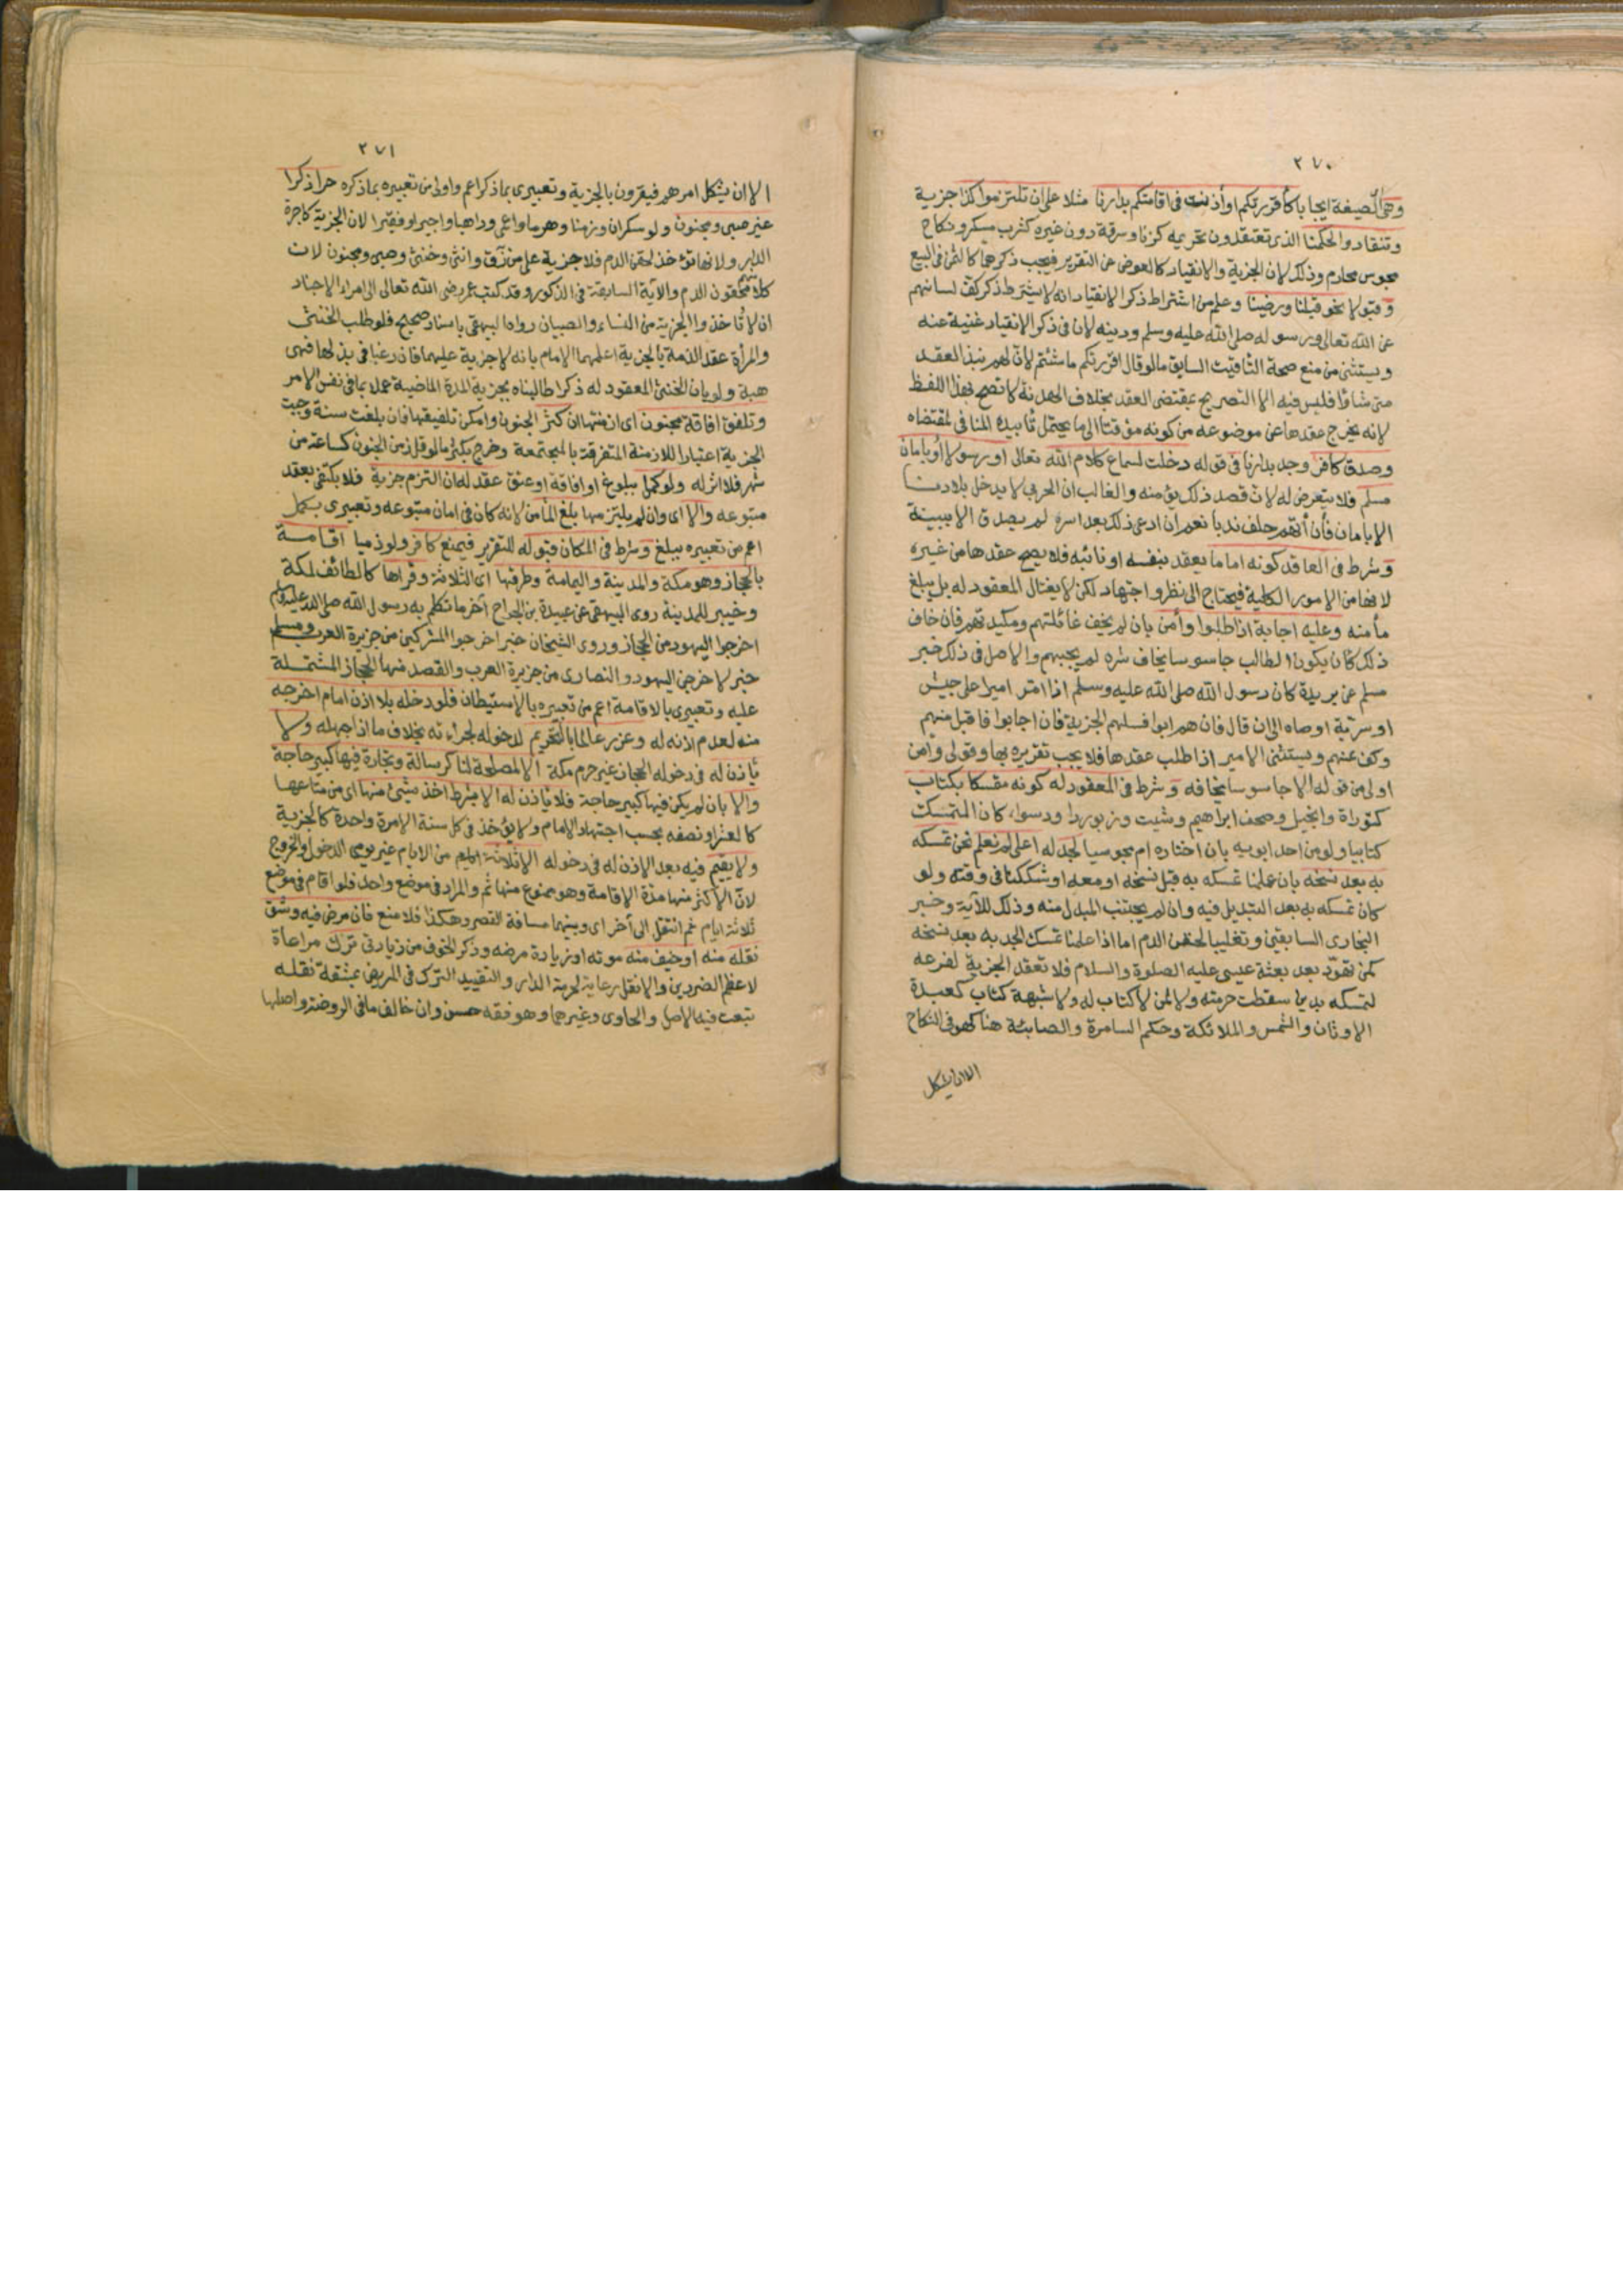 ٢٧٠
وهي الصيغة ايجابا كأقررتكم او أذنت في اقامتكم بدارنا مثلا على ان تلتزموا كذا جزية
وتنقادوا لحكمنا الذى تعتقدون تحريمه كزنا وسرقة دون غيره كشرب مسكر ونكاح
مجوس محارم وذلك لان الجزية والانقياد كالعوض عن التقرير فيجب ذكرهما كالثمن في البيع
وقبولا نحو قبلنا ورضينا وعلم من اشتراط ذكر الانقياد انه لا يشترط ذكر كف لسانهم
عن الله تعالى ورسوله صلى الله عليه وسلم ودينه لان في ذكر الانقياد غنية عنه
ويستثنى من منع صحة التاقيت السابق ما لو قال اقررتكم ما شئتم لان لهم نبذ العقد
متى شاؤا فليس فيه الا التصريح بمقتضى العقد بخلاف الهدنة لا تصح بهذا اللفظ
لانه يخرج عقدها عن موضوعه من كونه مؤقتا الى ما يحتمل تأبيده المنافي لمقتضاه
وصدق كافر وجد بدارنا في قوله دخلت لسماع كلام الله تعالى او رسولا او بامان
مسلم فلا يتعرض له لان قصد ذلك يؤمنه والغالب ان الحربي لا يدخل بلادنا
الا بامان فأن أتهم حلف ندبا نعم ان ادعى ذلك بعد اسره لم يصدق الا ببينة
وشرط في العاقد كونه اماما يعقد بنفسه او نائبه فلا يصح عقدها من غيره
لانها من الامور الكلية فيحتاج الى نظر واجتهاد لكن لا يغتال المعقود له بل يبلغ
مأمنه وعليه اجابة اذا طلبوا وأمن بان لم يخف غائلتهم ومكيدتهم فان خاف
ذلك كان يكون الطالب جاسوسا يخاف شره لم يجبهم والاصل في ذلك خبر
مسلم عن بريدة كان رسول الله صلى الله عليه وسلم اذا امر اميرا على جيش
او سرية اوصاه الى ان قال فان هم ابوا فسلهم الجزية فان اجابوا فاقبل منهم
وكف عنهم ويستثنى الاسير اذا طلب عقدها فلا يجب تقريره بها وقولي وأمن
اولى من قوله الا جاسوسا يخافه وشرط في المعقود له كونه متمسكا بكتاب
كتوراة وانجيل وصحف ابراهيم وشيث وزبور داود سواء كان المتمسك
كتابيا ولو من احد ابويه بان اختاره ام مجوسيا لجد له اعلى لم نعلم نحن تمسكه
به بعد نسخه بان علمنا تمسكه به قبل نسخه او معه او شككنا في وقته ولو
كان تمسكه به بعد التبديل فيه وان لم يجتنب المبدل منه وذلك للآية وخبر
البخارى السابقين وتغليبا لحقن الدم اما اذا علمنا تمسك الجد به بعد نسخه
كمن تهوّد بعد بعثة عيسى عليه الصلوة والسلام فلا تعقد الجزية لفرعه
لتمسكه بدين سقطت حرمته ولا لمن لا كتاب له ولا شبهة كتاب كعبدة
الاوثان والشمس والملائكة وحكم السامرة والصابئة هنا كهو في النكاح
الا ان يشكل
٢٧١
الا ان يشكل امرهم فيقرون بالجزية وتعبيرى بما ذكر اعم واولى من تعبيره بما ذكره حرا ذكرا
غير صبي ومجنون ولو سكران وزمنا وهرما واعمى وراهبا واجيرا وفقيرا لان الجزية كاجرة
الدار ولانها تؤخذ لحقن الدم فلا جزية على من رق وانثى وخنثى وصبي ومجنون لان
كلا محقون الدم والآية السابقة في الذكور وقد كتب عمر رضى الله تعالى الى امراء الاجناد
ان لا تأخذوا الجزية من النساء والصبيان رواه البيهقي باسناد صحيح فلو طلب الخنثى
والمرأة عقد الذمة بالجزية اعلمهما الامام بانه لا جزية عليهما فان رغبا في بذلها فهى
هبة ولو بان الخنثى المعقود له ذكرا طالبناه بجزية المدة الماضية عملا بما في نفس الامر
وتلفق افاقة مجنون اى ازمنتها ان كثر الجنون وامكن تلفيقها فان بلغت سنة وجبت
الجزية اعتبارا للازمنة المتفرقة بالمجتمعة وخرج بكثر ما لو قل زمن الجنون كساعة من
شهر فلا اثر له ولو كمل ببلوغ او افاقة او عتق عقد له ان التزم جزية فلا يكتفى بعقد
متبوعه والا اى وان لم يلتزمها بلغ المأمن لانه كان في امان متبوعه وتعبيرى بكمل
اعم من تعبيره ببلغ وشرط في المكان قبوله للتقرير فيمنع كافر ولو ذميا اقامة
بالحجاز وهو مكة والمدينة واليمامة وطرقها اى الثلاثة وقراها كالطائف لمكة
وخيبر للمدينة روى البيهقى عن عبيدة بن الجراح آخر ما تكلم به رسول الله صلى الله عليه وسلم
اخرجوا اليهود من الحجاز وروى الشيخان خبر اخرجوا المشركين من جزيرة العرب ومسلم
خبر لاخرجن اليهود والنصارى من جزيرة العرب والقصد منها الحجاز المشتملة
عليه وتعبيرى بالاقامة اعم من تعبيره بالاستيطان فلو دخله بلا اذن امام اخرجه
منه لعدم اذنه له وعزر عالما بالتحريم لدخوله لجراءته بخلاف ما اذا جهله ولا
يأذن له في دخوله الحجاز غير حرم مكة الا لمصلحة لنا كرسالة وتجارة فيها كبير حاجة
والا بان لم يكن فيها كبير حاجة فلا يأذن له الا بشرط اخذ شئ منها اى من متاعها
كالعشر او نصفه بحسب اجتهاد الامام ولا يؤخذ في كل سنة الا مرة واحدة كالجزية
ولا يقيم فيه بعد الاذن له في دخوله الا ثلاثة من الايام غير يومى الدخول والخروج
لان الاكثر منها مدة الاقامة وهو ممنوع منها ثم والمراد في موضع واحد فلو اقام في موضع
ثلاثة ايام ثم انتقل الى آخر اى وبينهما مسافة القصر وهكذا فلا منع فان مرض فيه وشق
نقله منه او خيف منه موته او زيادة مرضه وذكر الخوف من زيادتى ترك مراعاة
لاعظم الضررين والا نقل رعاية لحرمة الدار والتقييد الترك في المريض بمشقة نقله
تبعت فيه الاصل والحاوى وغيرهما وهو فقه حسن وان خالف ما في الروضة واصلها